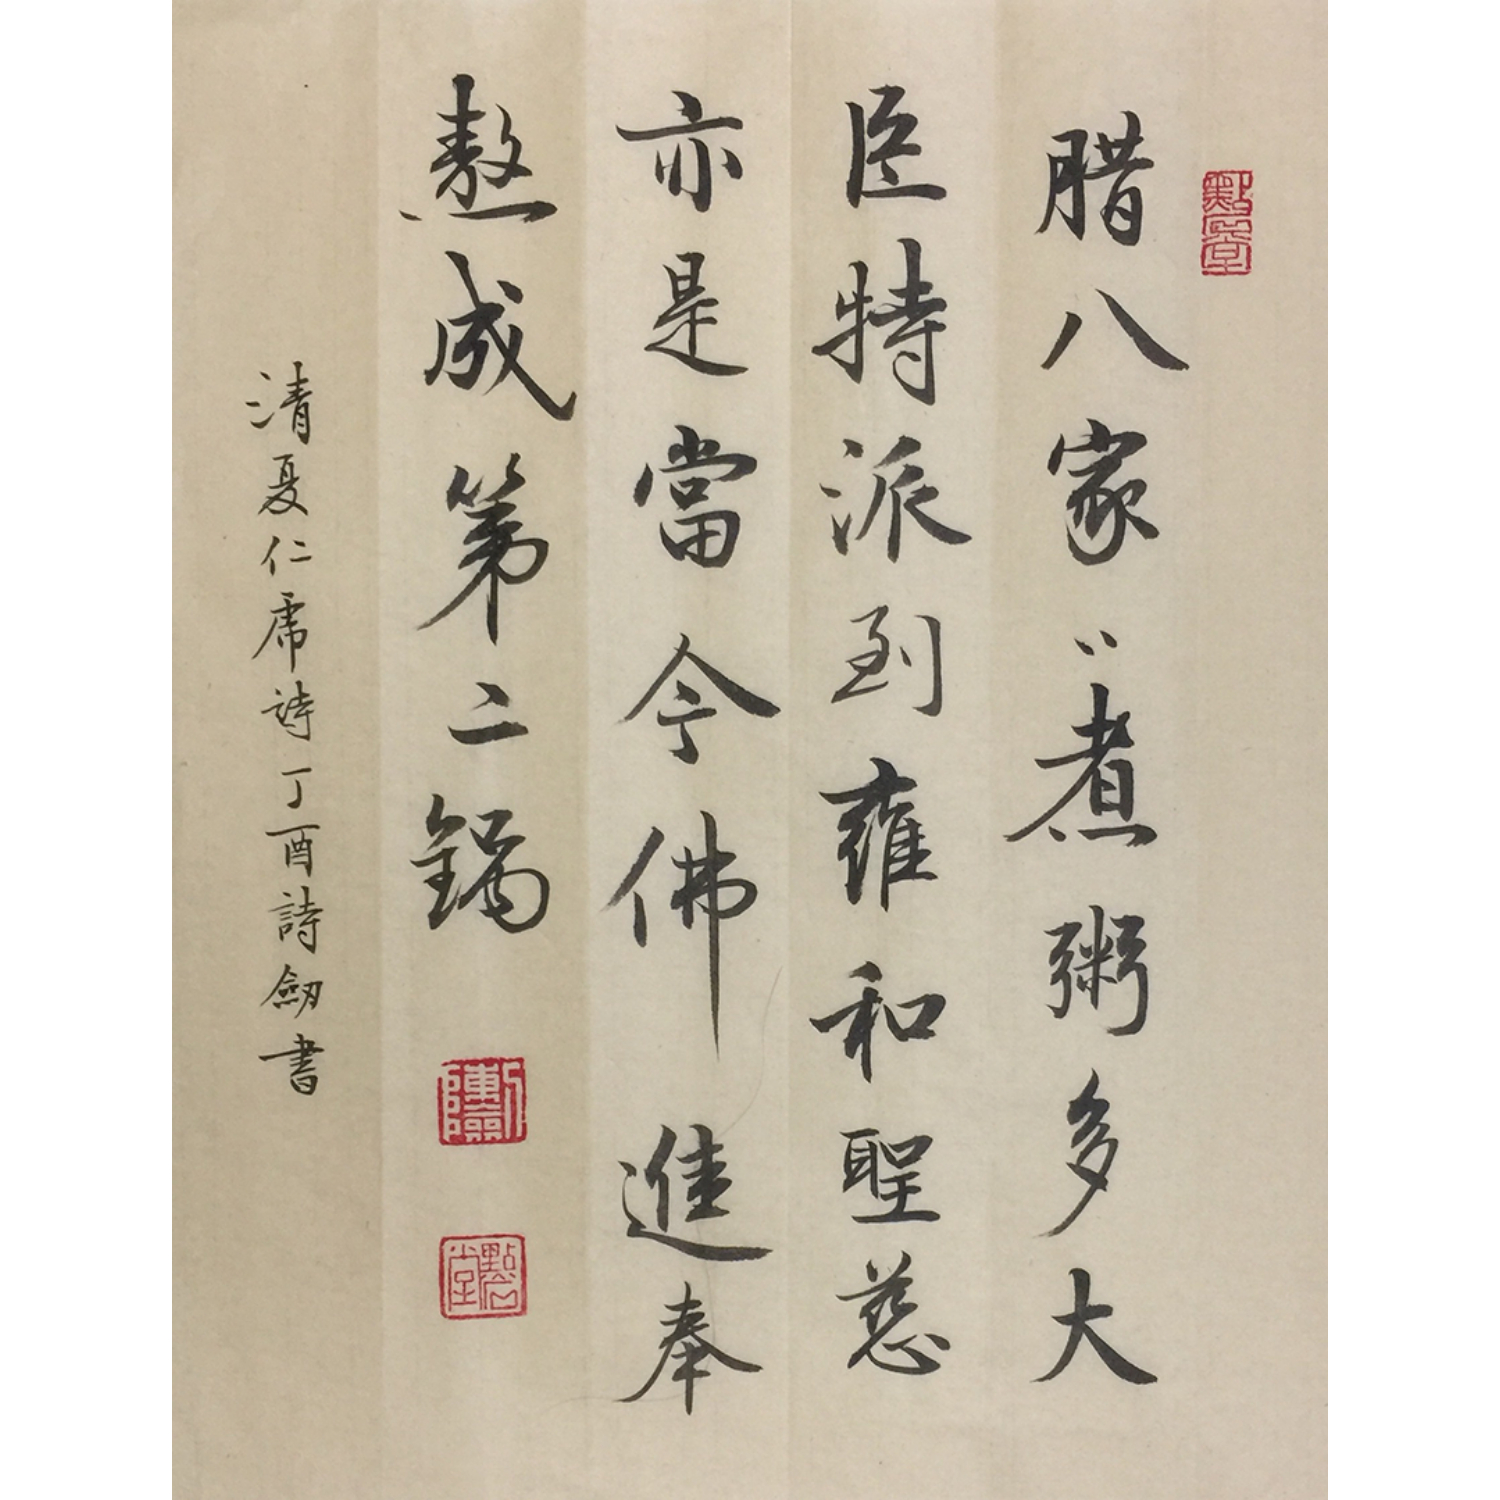 腊八家〻煮粥多大
臣特派到雍和聖慈
亦是當今佛進奉
熬成第二鍋
清夏仁虎詩丁酉詩劔書
點石堂